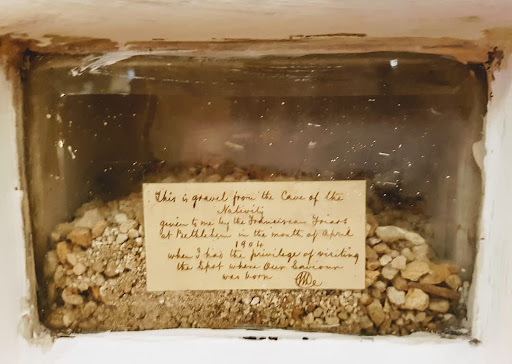 This is gravel from the Cave of the
Nativity
given to me by the Franciscan Friars
at Bethlehem in the month of April
1904.
when I had the privilege of visiting
the Spot where Our Saviour
was born